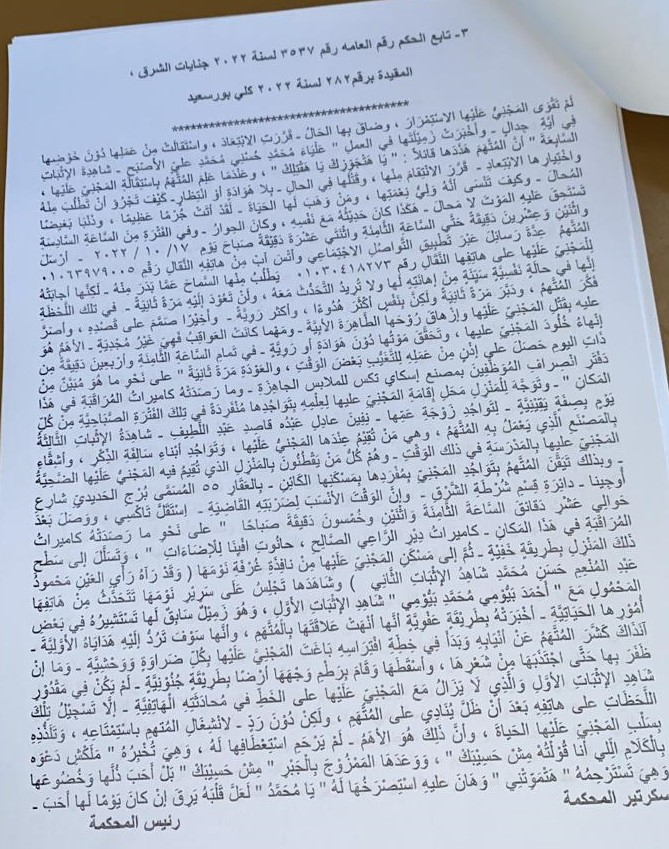 ٣- تابع الحكم رقم العامه رقم ٣٥٣٧ لسنة ٢٠٢٢ جنايات الشرق ،
المقيدة برقم ٢٨٢ لسنة ٢٠٢٢ كلي بورسعيد
******************************
لَمْ تَقْوَى المَجْنِيُّ عَلَيْهَا الاسْتِمْرَارَ ، وضَاقَ بِهَا الحَالُ – قَرَّرَتِ الابْتِعَادَ ، واسْتَقَالَتْ مِنْ عَمَلِهَا دُونَ خَوْضِهَا
فِي أَيَّةِ جِدَالٍ – وأَخْبَرَتْ زَمِيلَتَهَا فِي العَمَلِ " عَلْيَاءَ مُحَمَّد حُسْنِي مُحَمَّد عَلِيّ الأَصْبَحِ – شَاهِدَةَ الإِثْبَاتِ
السَّابِعَةَ " أَنَّ المُتَّهَمَ هَدَّدَهَا قَائِلاً : " يَا هَتْجَوّزَكْ يَا هَقْتِلَكْ " ، وعِنْدَمَا عَلِمَ المُتَّهَمُ بِاسْتِقَالَةِ المَجْنِيِّ عَلَيْهَا ،
واخْتِيارِهَا الابْتِعَادِ – قَرَّرَ الانْتِقَامَ مِنْهَا ، وقَتْلَهَا فِي الحَالِ – بِلَا هَوَادَةٍ أَوِ انْتِظَارٍ – كَيْفَ تَجْرُؤُ أَنْ تَطْلُبَ مِنْهُ
المُحَالَ – وكَيْفَ تَنْسَى أَنَّهُ وَلِيُّ نِعْمَتِهَا ، ومَنْ وَهَبَ لَهَا الحَيَاةَ – لَقَدْ أَتَتْ جُرْمًا عَظِيمًا ، وذَنْبًا بَغِيضًا
تَسْتَحِقُّ عَلَيهِ المَوْتَ لا مَحَالَ – هَكَذَا كَانَ حَدِيثُهُ مَعَ نَفْسِهِ ، وكَانَ الحِوَارُ – وفِي الفَتْرَةِ مِنَ السَّاعَةِ السَّادِسَةِ
واثْنَيْنِ وعِشْرِينَ دَقِيقَةً حَتَّى السَّاعَةِ الثَّامِنَةِ واثْنَتَيْ عَشْرَةَ دَقِيقَةً صَبَاحَ يَوْمِ ١٧ / ١٠ / ٢٠٢٢ – أَرْسَلَ
المُتَّهَمُ عِدَّةَ رَسَائِلَ عَبْرَ تَطْبِيقِ التَّوَاصُلِ الاجْتِمَاعِي وَاتْسْ آبْ مِنْ هَاتِفِهِ النَّقَّالِ رَقْمِ ٠١٠٦٢٣٩٧٩٠٠٥
لِلْمَجْنِيِّ عَلَيْهَا عَلَى هَاتِفِهَا النَّقَّالِ رقم ٠١٠٣٠٤١٨٢٧٣ يَطْلُبُ مِنْهَا السَّمَاحَ عَمَّا بَدَرَ مِنْهُ – لَكِنَّهَا أَجَابَتْهُ
إِنَّهَا فِي حَالَةٍ نَفْسِيَّةٍ سَيِّئَةٍ مِنْ إِهَانَتِهِ لَهَا ولا تُرِيدُ التَّحَدُّثَ مَعَهُ ، ولَنْ تَعُودَ إِلَيْهِ مَرَّةً ثَانِيَةً – فِي تِلْكَ اللَّحْظَةِ
فَكَّرَ المُتَّهَمُ ، ودَبَّرَ مَرَّةً ثَانِيَةً ولَكِنْ بِنَفْسٍ أَكْثَرَ هُدُوءًا ، وأَكْثَرَ رَوِيَّةً – وأَخِيرًا صَمَّمَ عَلَى قَصْدِهِ ، وأَصَرَّ
عَلَيهِ بِقَتْلِ المَجْنِيِّ عَلَيْهَا وإِزْهَاقِ رُوْحِهَا الطَّاهِرَةِ الأَبِيَّةِ – ومَهْمَا كَانَتِ العَوَاقِبُ فَهِيَ غَيْرُ مُجْدِيَةٍ – الأَهَمُّ هُوَ
إِنْهَاءُ خُلُودَ المَجْنِيِّ عليها ، وتَحَقَّقَ مَوْتُهَا دُونَ هَوَادَةٍ أَوْ رَوِيَّةٍ – فِي تَمَامِ السَّاعَةِ الثَّامِنَةِ وأَرْبَعِينَ دَقِيقَةً مِنْ
ذَاتِ اليَومِ حَصَلَ عَلَى إِذْنٍ مِنْ عَمَلِهِ لِلتَّغَيُّبِ بَعْضَ الوَقْتِ ، والعَوْدَةِ مَرَّةً ثَانِيَةً " عَلَى نَحْوِ مَا هُوَ مُبَيَّنٌ مِنْ
دَفْتَرِ انْصِرَافِ المُوَظَّفِينَ بِمَصْنَعِ إِسْكَاي تكس للملابس الجَاهِزَةِ – ومَا رَصَدَتْهُ كَامِيرَاتُ المُرَاقَبَةِ فِي هَذَا
المَكَانِ " – وتَوَجَّهَ لِلْمَنْزِلِ مَحَلِّ إِقَامَةِ المَجْنِيِّ عَلَيْهَا لِعِلْمِهِ بِتَوَاجُدِهَا مُنْفَرِدَةً فِي تِلْكَ الفَتْرَةِ الصَّبَاحِيَّةِ مِنْ كُلِّ
يَوْمٍ بِصِفَةٍ يَقِينِيَّةٍ – لِتَوَاجُدِ زَوْجَةِ عَمِّهَا – نِفِين عادل عَبْدُه قاصد عَبْد اللطيف – شَاهِدَةِ الإِثْبَاتِ الثَّالِثَةِ
بِالمَصْنَعِ الَّذِي يَعْمَلُ بِهِ المُتَّهَمُ ، وهِيَ مَنْ تُقِيمُ عِنْدَهَا المَجْنِيُّ عَلَيْهَا ، وتَوَاجُدِ أَبْنَاءِ سَالِفَةِ الذِّكْرِ ، وأَشِقَّاءِ
المَجْنِيِّ عليها بِالمَدْرَسَةِ فِي ذَلِكَ الوَقْتِ – وهُمْ كُلُّ مَنْ يَقْطُنُونَ بِالمَنْزِلِ الذي تُقِيمُ فيه المَجْنِيُّ عَلَيْهَا الضَّحِيَّةُ
– وبذلك تَيَقَّنَ المُتَّهَمُ بِتَوَاجُدِ المَجْنِيِّ بِمُفْرَدِهَا بِمَسْكَنِهَا الكَائِنِ – بِالعَقَارِ ٥٥ المُسَمَّى بُرْجَ الحَدِيدِي شارع
أوجينا – دَائِرَةَ قِسْمِ شُرْطَةِ الشَّرْقِ – وإِنَّ الوَقْتَ الأَنْسَبُ لِضَرْبَتِهِ القَاضِيَةِ – اسْتَقَلَّ تَاكْسِي ، ووَصَلَ بَعْدَ
حَوالِي عَشْرِ دَقَائِقَ السَّاعَةَ الثَّامِنَةَ واثْنَتَيْنِ وخَمْسُونَ دَقِيقَةً صَبَاحًا " عَلَى نَحْوِ مَا رَصَدَتْهُ كَامِيرَاتُ
المُرَاقَبَةِ فِي هَذَا المَكَانِ – كَامِيرَاتُ دِيْرِ الرَّاعِي الصَّالِحِ ، حَانُوتِ أفينا لِلْإِضَاءَاتِ " ، وتَسَلَّلَ إِلَى سَطْحِ
ذَلِكَ المَنْزِلِ بِطَرِيقَةٍ خَفِيَّةٍ – ثُمَّ إِلَى مَسْكَنِ المَجْنِيِّ عَلَيْهَا مِنْ نَافِذَةِ غُرْفَةِ نَوْمِهَا ( وقَدْ رَآهُ رَأْيَ العَيْنِ مَحْمُودُ
عَبْد المُنْعِم حَسَن مُحَمَّد شَاهِدُ الإِثْبَاتِ الثَّانِي ) وشَاهَدَهَا تَجْلِسُ عَلَى سَرِيرِ نَوْمِهَا تَتَحَدَّثُ مِنْ هَاتِفِهَا
المَحْمُولِ مَعَ " أَحْمَدَ بَيُّومِي مُحَمَّد بَيُّومِي " شَاهِدِ الإِثْبَاتِ الأَوَّلِ ، وهُوَ زَمِيلٌ سَابِقٌ لَهَا تَسْتَشِيرُهُ فِي بَعْضِ
أُمُورِهَا الحَيَاتِيَّةِ – أَخْبَرَتْهُ بِطَرِيقَةٍ عَفْوِيَّةٍ أَنَّهَا أَنْهَتْ عَلاقَتَهَا بِالمُتَّهَمِ ، وأَنَّهَا سَوْفَ تَرُدُّ إِلَيْهِ هَدَايَاهُ الأَوَّلِيَّةَ –
آنَذَاكَ كَشَّرَ المُتَّهَمُ عَنْ أَنْيَابِهِ وبَدَأَ فِي خِطَّةِ افْتِرَاسِهِ بَاغَتَ المَجْنِيَّ عَلَيْهَا بِكُلِّ ضَرَاوَةٍ ووَحْشِيَّةٍ – ومَا إِنْ
ظَفَرَ بِهَا حَتَّى اجْتَذَبَهَا مِنْ شَعْرِهَا ، وأَسْقَطَهَا وقَامَ بِرَطْمِ وَجْهِهَا أَرْضًا بِطَرِيقَةٍ جُنُونِيَّةٍ – لَمْ يَكُنْ فِي مَقْدُورِ
شَاهِدِ الإِثْبَاتِ الأَوَّلِ والَّذِي لَا يَزَالُ مَعَ المَجْنِيِّ عَلَيْهَا عَلَى الخَطِّ فِي مُحَادَثَتِهِ الهَاتِفِيَّةِ – إِلَّا تَسْجِيلُ تِلْكَ
اللَّحَظَاتِ عَلَى هَاتِفِهِ بَعْدَ أَنْ ظَلَّ يُنَادِي عَلَى المُتَّهَمِ ، ولَكِنْ دُونَ رَدٍّ – لِانْشِغَالِ المُتَّهَمِ بِاسْتِمْتَاعِهِ ، وتَلَذُّذِهِ
بِسَلْبِ المَجْنِيِّ عَلَيْهَا الحَيَاةَ ، وأَنَّ ذَلِكَ هُوَ الأَهَمُّ – لَمْ يَرْحَمْ اسْتِعْطَافَهَا لَهُ ، وَهِيَ تُخْبِرُهُ " مَلَكْش دَعْوَه
بِالْكَلَامِ اللِي أَنَا قُولْتُهُ مِشْ حَسِيبَكْ " ، ووَعَدَهَا المَمْزُوجَ بِالْجَبْرِ " مِشْ حَسِيبَكْ " بَلْ أَحَبَّ ذُلَّهَا وَخُضُوعَهَا
وَهِيَ تَسْتَرْحِمُهُ " هَتْمَوِّتْنِي " وَهَانَ عَلَيهِ اسْتِصْرَخَهَا لَهُ " يَا مُحَمَّدْ " لَعَلَّ قَلْبَهُ يَرِقُّ إِنْ كَانَ يَوْمًا لَهَا أَحَبَّ –
سكرتير المحكمة
رئيس المحكمة